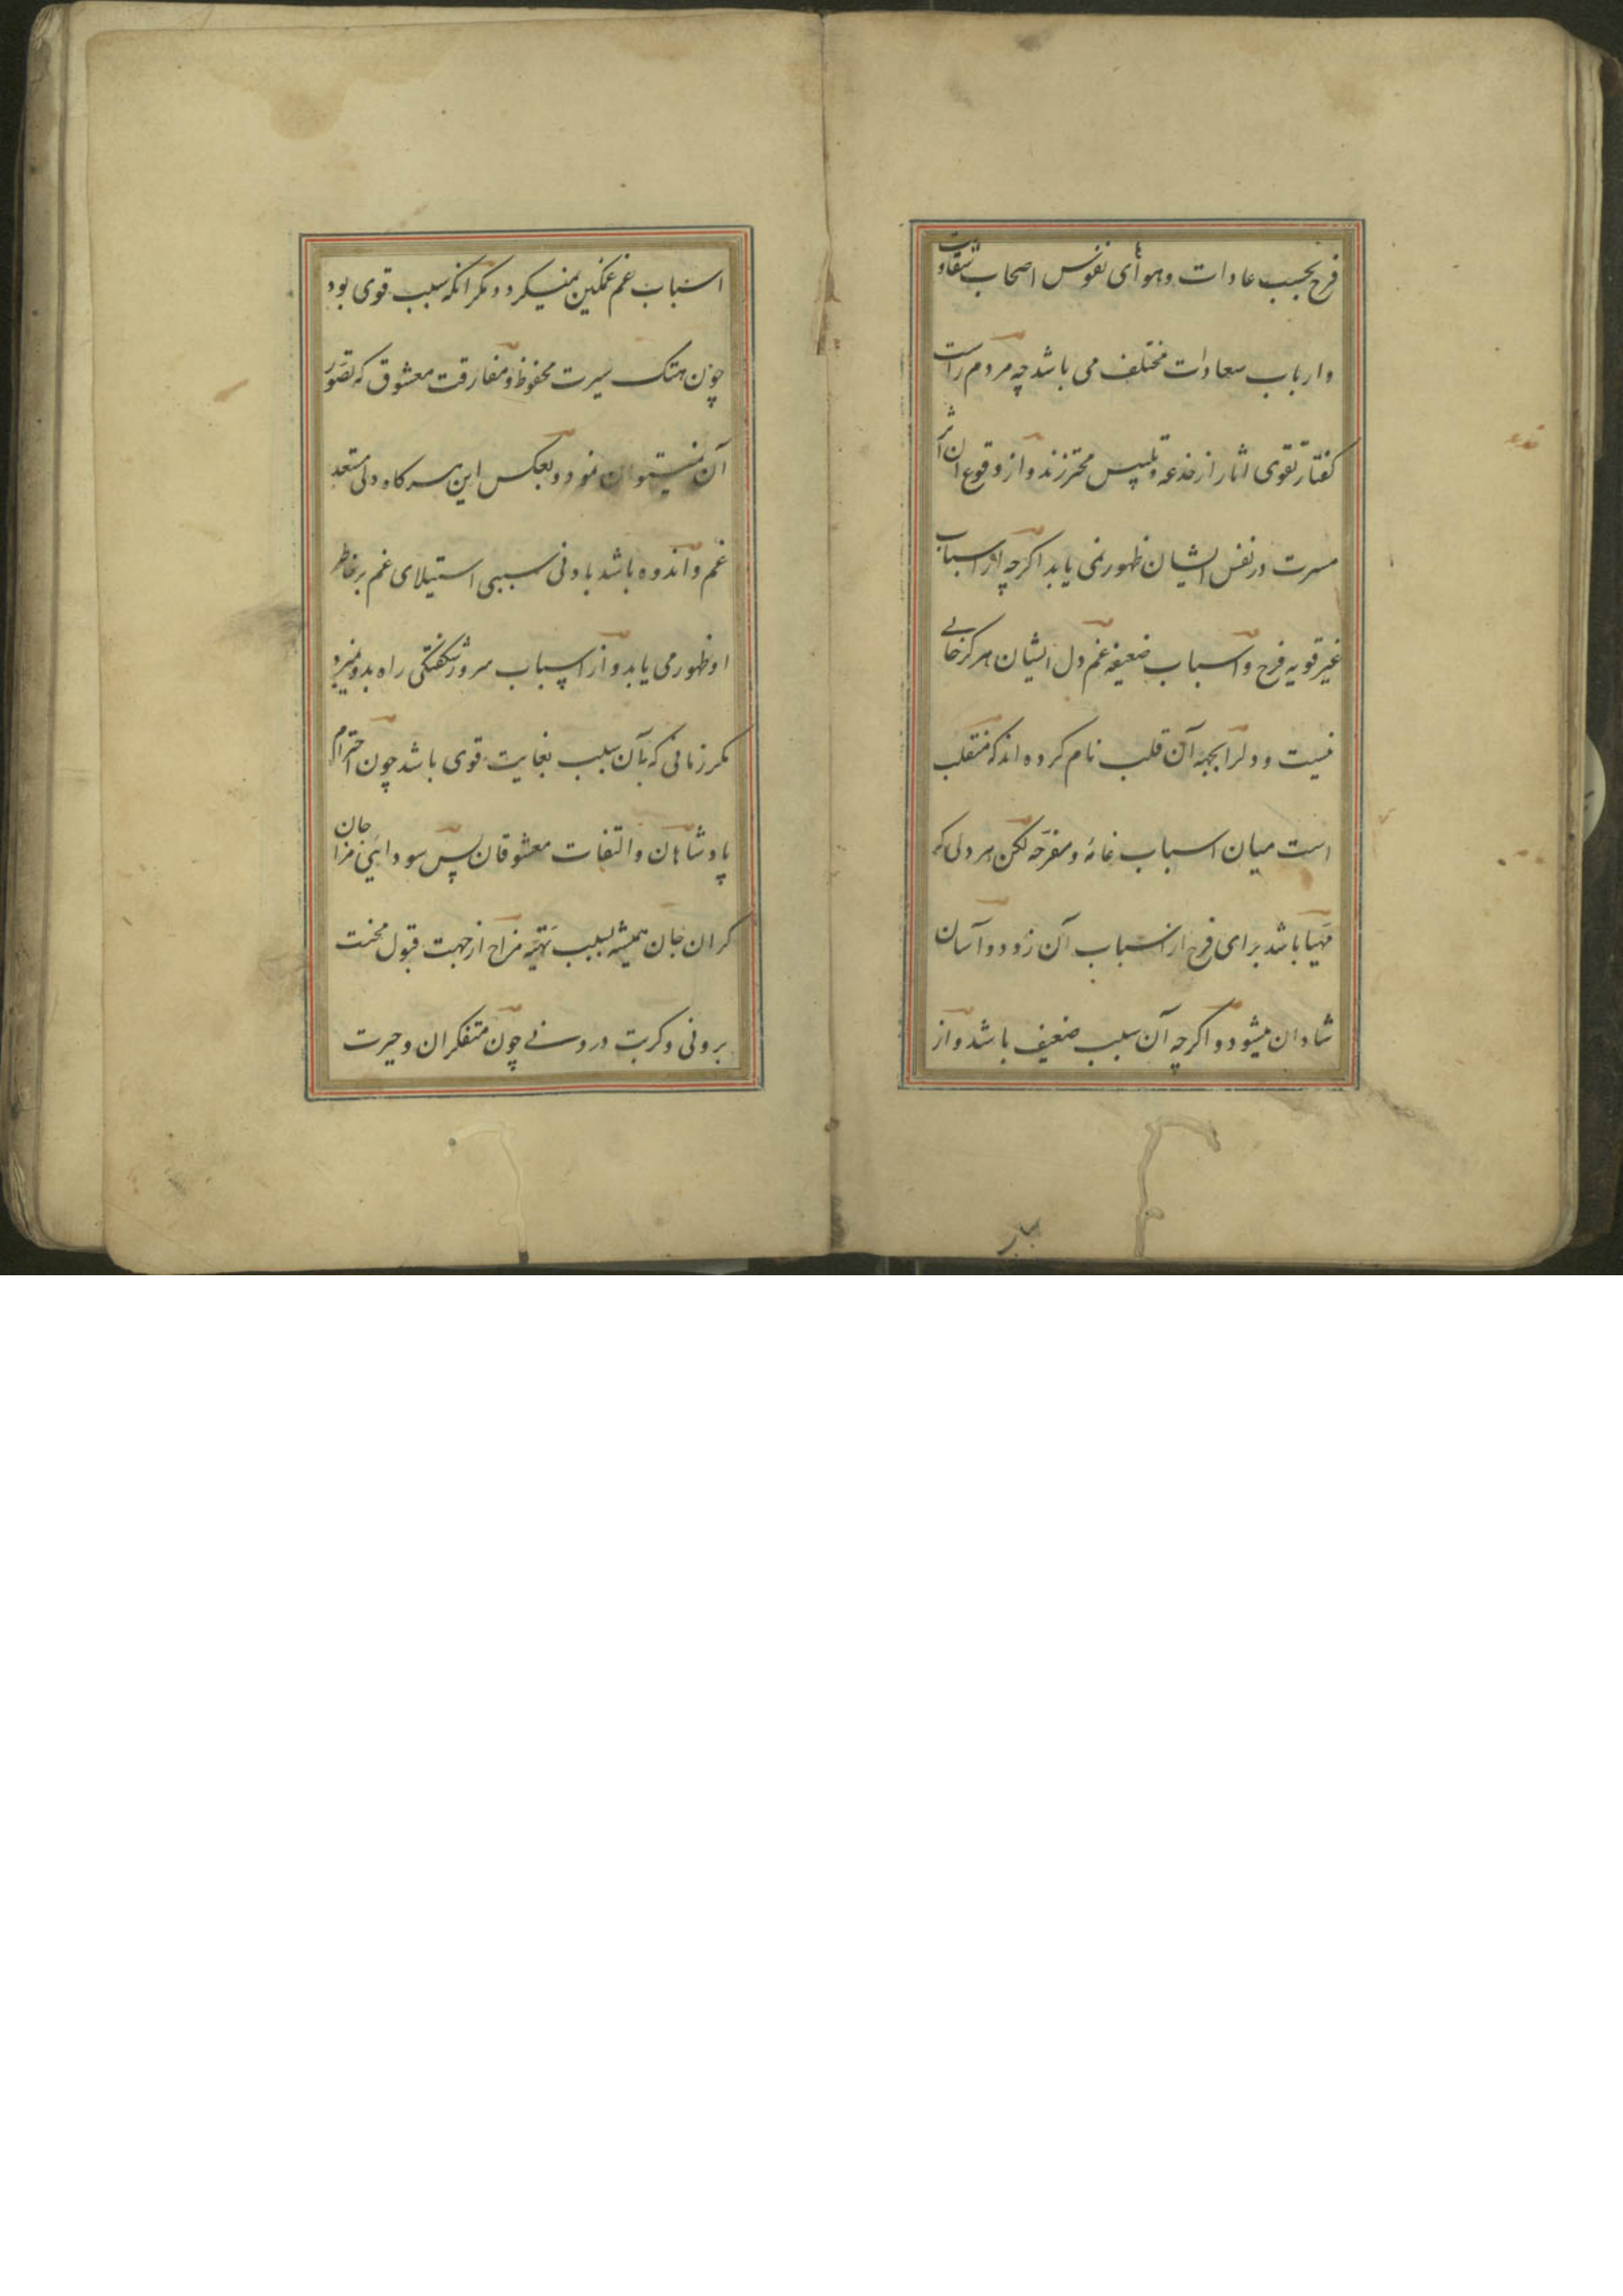 فرح بحسب عادات وهوای نفوس اصحاب شقاوت
وارباب سعادات مختلف می باشد چه مردم راست
کفتار تقوی اثار از خدعه وتلبیس محترزند واز وقوع ان اثر
مسرت در نفس ایشان ظهور نمی یابد اکرچه از اسباب
غیر قویه فرح واسباب ضعیفه غم دل ایشان هرکز خالی
نیست ودلرا بجهة آن قلب نام کرده اند که منقلب
است میان اسباب غامّه ومفرّحه لکن هر دلی که
مهیّا باشد برای فرح از اسباب آن زود وآسان
شادان میشود واکرچه آن سبب ضعیف باشد واز
اسباب غم غمکین نمیکردد مکر انکه سبب قوی بود
چون هتک سیرت محفوظ ومفارقت معشوق که تصوّر
آن نمیتوان نمود وبعکس این هرکاه دلی مستعد
غم واندوه باشد بادنی سببی استیلای غم بر خاطر
او ظهور می یابد واز اسباب سرور شکفتکی راه بدو نمیبرد
مکر زمانی که آن سبب بغایت قوی باشد چون احترام
پادشاهان والتفات معشوقان پس سودایی مزاجان
کران جان همیشه بسبب تهیّه مزاج از جهت قبول محنت
برونی وکربت درونی چون متفکران وحیرت